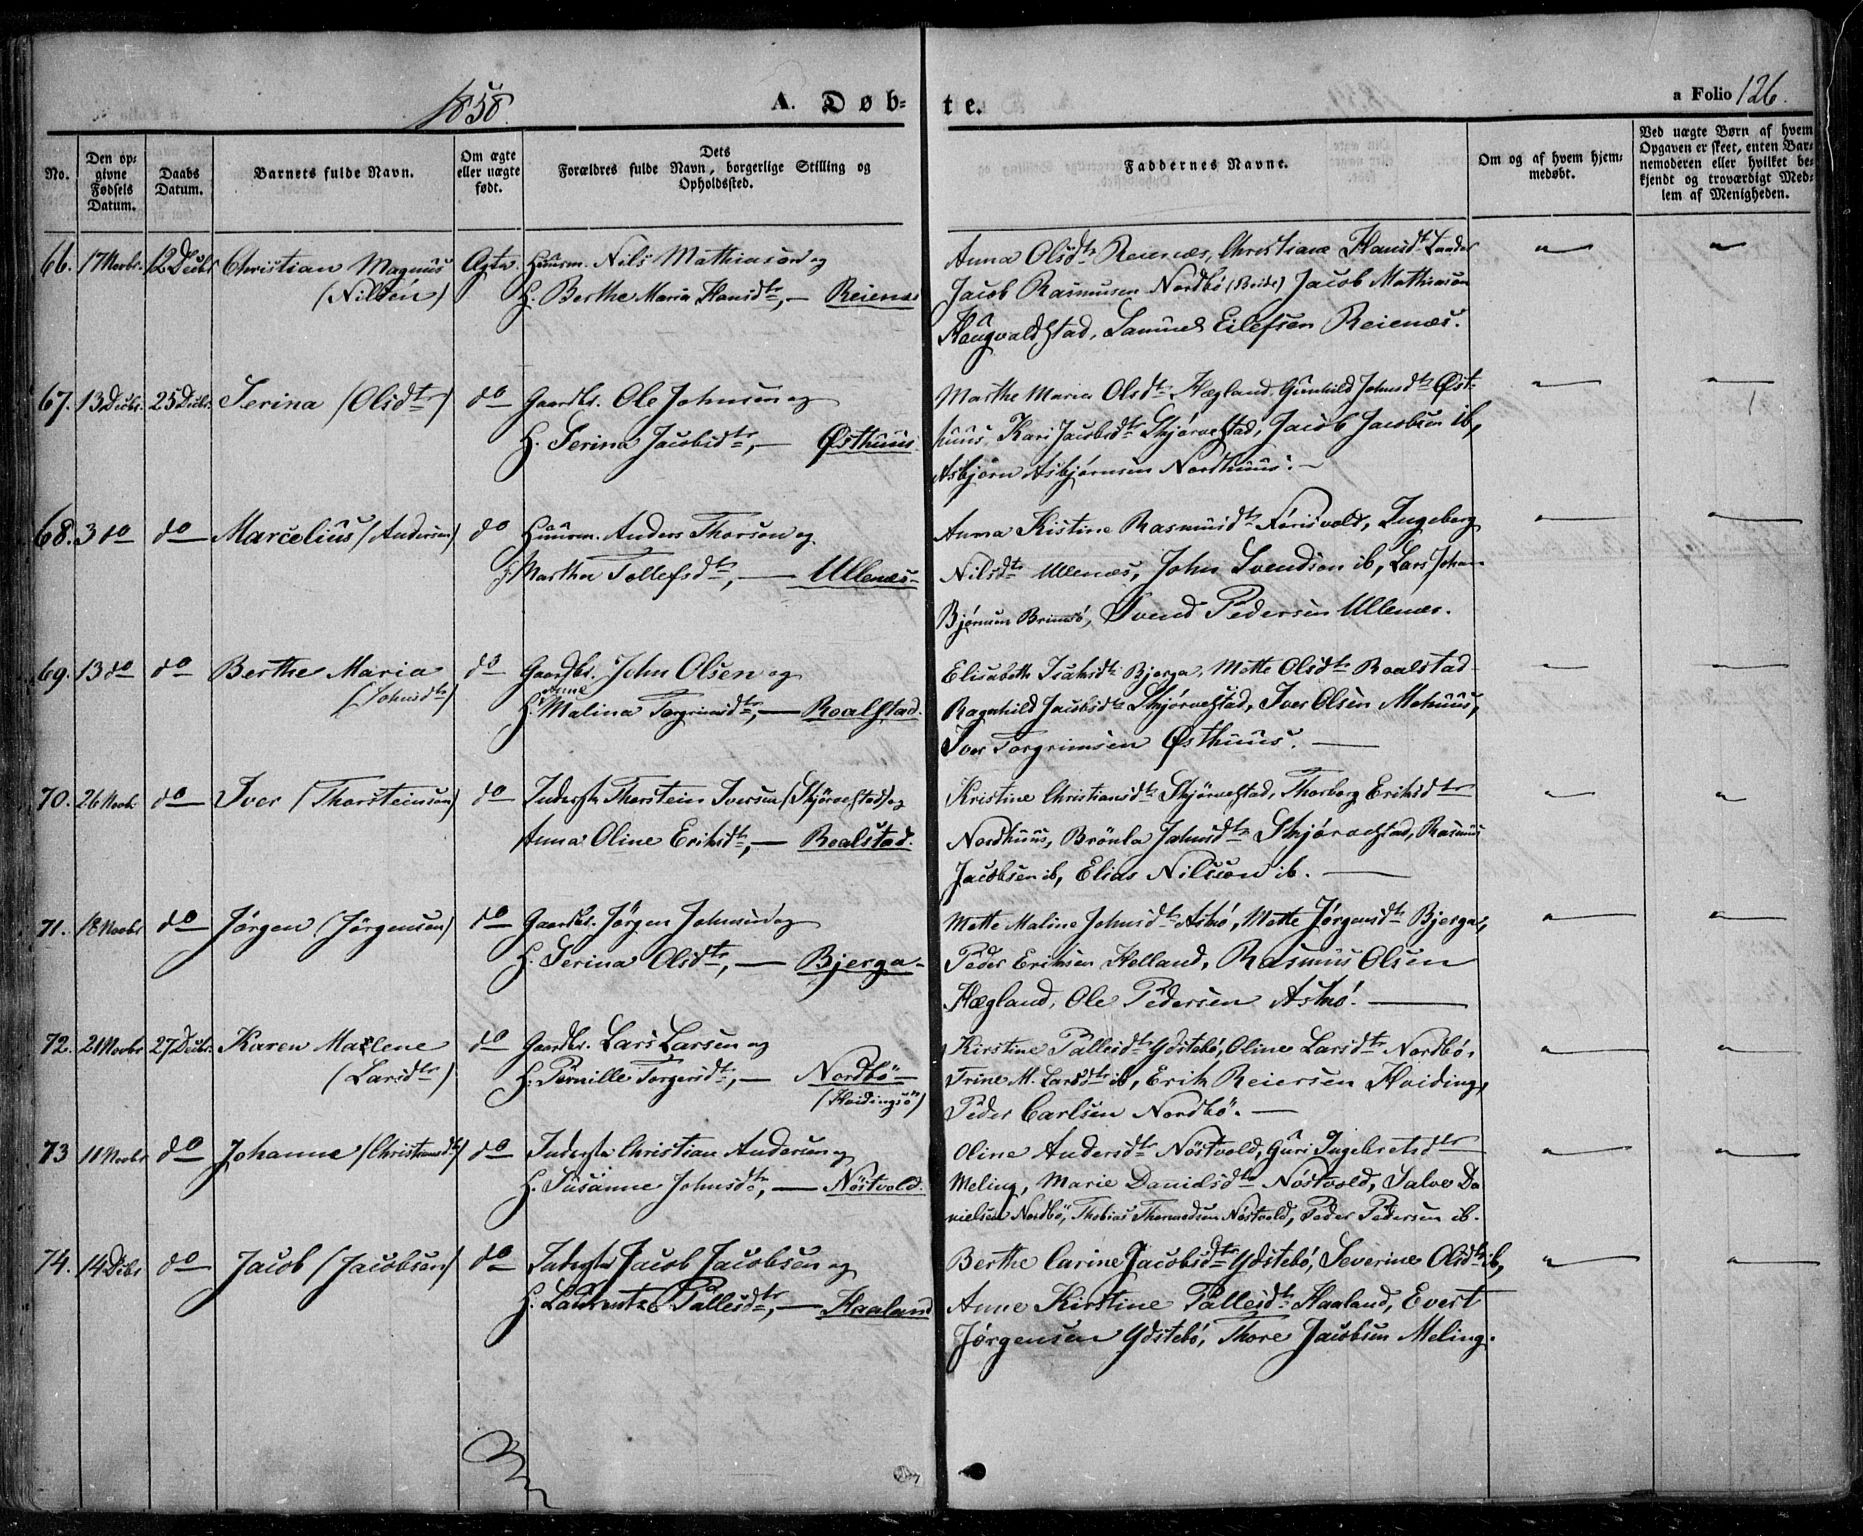 1858.
A. Døb-
te.
a Folio 126.
No.
Den op-
givne
Fødsels
Datum.
Daabs
Datum.
Barnets fulde Navn.
Om ægte
eller uægte
født.
Dets
Forældres fulde Navn, borgerlige Stilling og
Opholdssted.
Faddernes Navne.
Om og af hvem hjem-
medøbt.
Ved uægte Børn af hvem
Opgaven er skeet, enten Bar-
nemoderen eller hvilket be-
kjendt og troværdigt Med-
lem af Menigheden.
66. 17 Novbr. 12 Decbr. Christian Magnus Ægte Huusm. Nils Mathiason og
(Nilsen) H. Berthe Maria Hansdtr, — Reienæs
Anna Olsdtr Reienæs, Christiane Hansdtr
Jacob Rasmusen Nordbö Jacob Mathiason
Haugvaldstad, Samuel Eilefsen Reienæs.
67. 13 Decbr. 25 Decbr. Serina (Olsdtr) do Gaardbr. Ole Johnsen og
H. Serina Jacobsdtr, — Østhuus.
Marthe Maria Olsdtr Hægland, Gunhild Johnsdtr Øst-
huus, Kari Jacobsdtr Skjørvestad, Jacob Jacobsen ib,
Asbjørn Asbjørnsen Nordhuus. —
68. 3 do do Marcelius (Andersen) do Huusm. Anders Thorson og
H. Martha Tollefsdtr, — Ullenæs
Anna Kistine Rasmusdtr Ingeborg
Nilsdtr Ullenæs, John Svendsen ib, Lars Johan
Bjørnsen Brimsö, Svend Pedersen Ullenæs.
69. 13 do do Berthe Maria do Gaardbr. John Olsen og
(Johnsdtr) H. Anne Malina Torgrimsdtr, — Roalstad.
Elisabeth Isaksdtr Bjerga, Mette Olsdtr Roalstad
Ragnhild Jacobsdtr Skjørvestad, Iver Olsen Mehuus,
Iver Torgrimsen Østhuus. —
70. 26 Novbr. do Iver (Thorsteinsen) do Inderste Thorstein Iversen (Skjørvestad) og
Anna Oline Eriksdtr, — Roalstad.
Kristine Christiansdtr Skjørvestad, Thorborg Eriksdtr
Nordhuus, Brönla Johnsdtr Skjørvestad, Rasmus
Jacobsen ib, Elias Nilsson ib. —
71. 18 Novbr do Jørgen (Jørgensen) do Gaardbr. Jørgen Johnsen og
H. Serina Olsdtr, — Bjerga
Mette Maline Johnsdtr Askø, Mette Jørgensdtr Bjerga,
Peder Eriksen Helland, Rasmus Olsen
Hægland, Ole Pedersen Askø. —
72. 21 Novbr 27 Decbr. Karen Malene do Gaardbr. Lars Larsen og
(Larsdtr) H. Pernille Torgersdtr, — Nordbö
(Haidingsö)
Kirstine Pallesdtr Ydstebö, Oline Larsdtr Nordbø,
Trine M. Larsdtr ib, Erik Reiersen Haiding,
Peder Carlsen Nordbö. —
73 11 Novbr do Johanne (Christiansdtr) do Inderste Christian Andersen og
H. Susanne Johnsdtr, — Nöstvold.
Oline Andersdtr Nöstvold, Guri Ingebretsdtr
Meling, Marie Danielsdtr Nöstvold, Salve Da
nielsen Nordbö, Thobias Thormodsen Nöstvold, Peder Pedersen ib.
74. 14 Decbr do Jacob (Jacobsen) do Inderste Jacob Jacobsen og
H. Laurentze Pallesdtr, — Haaland
Berthe Carine Jacobsdtr Ydstebö, Severine Olsdtr ib,
Anne Kirstine Pallesdtr Haaland, Evert
Jørgensen Ydstebö, Thore Jacobsen Meling.